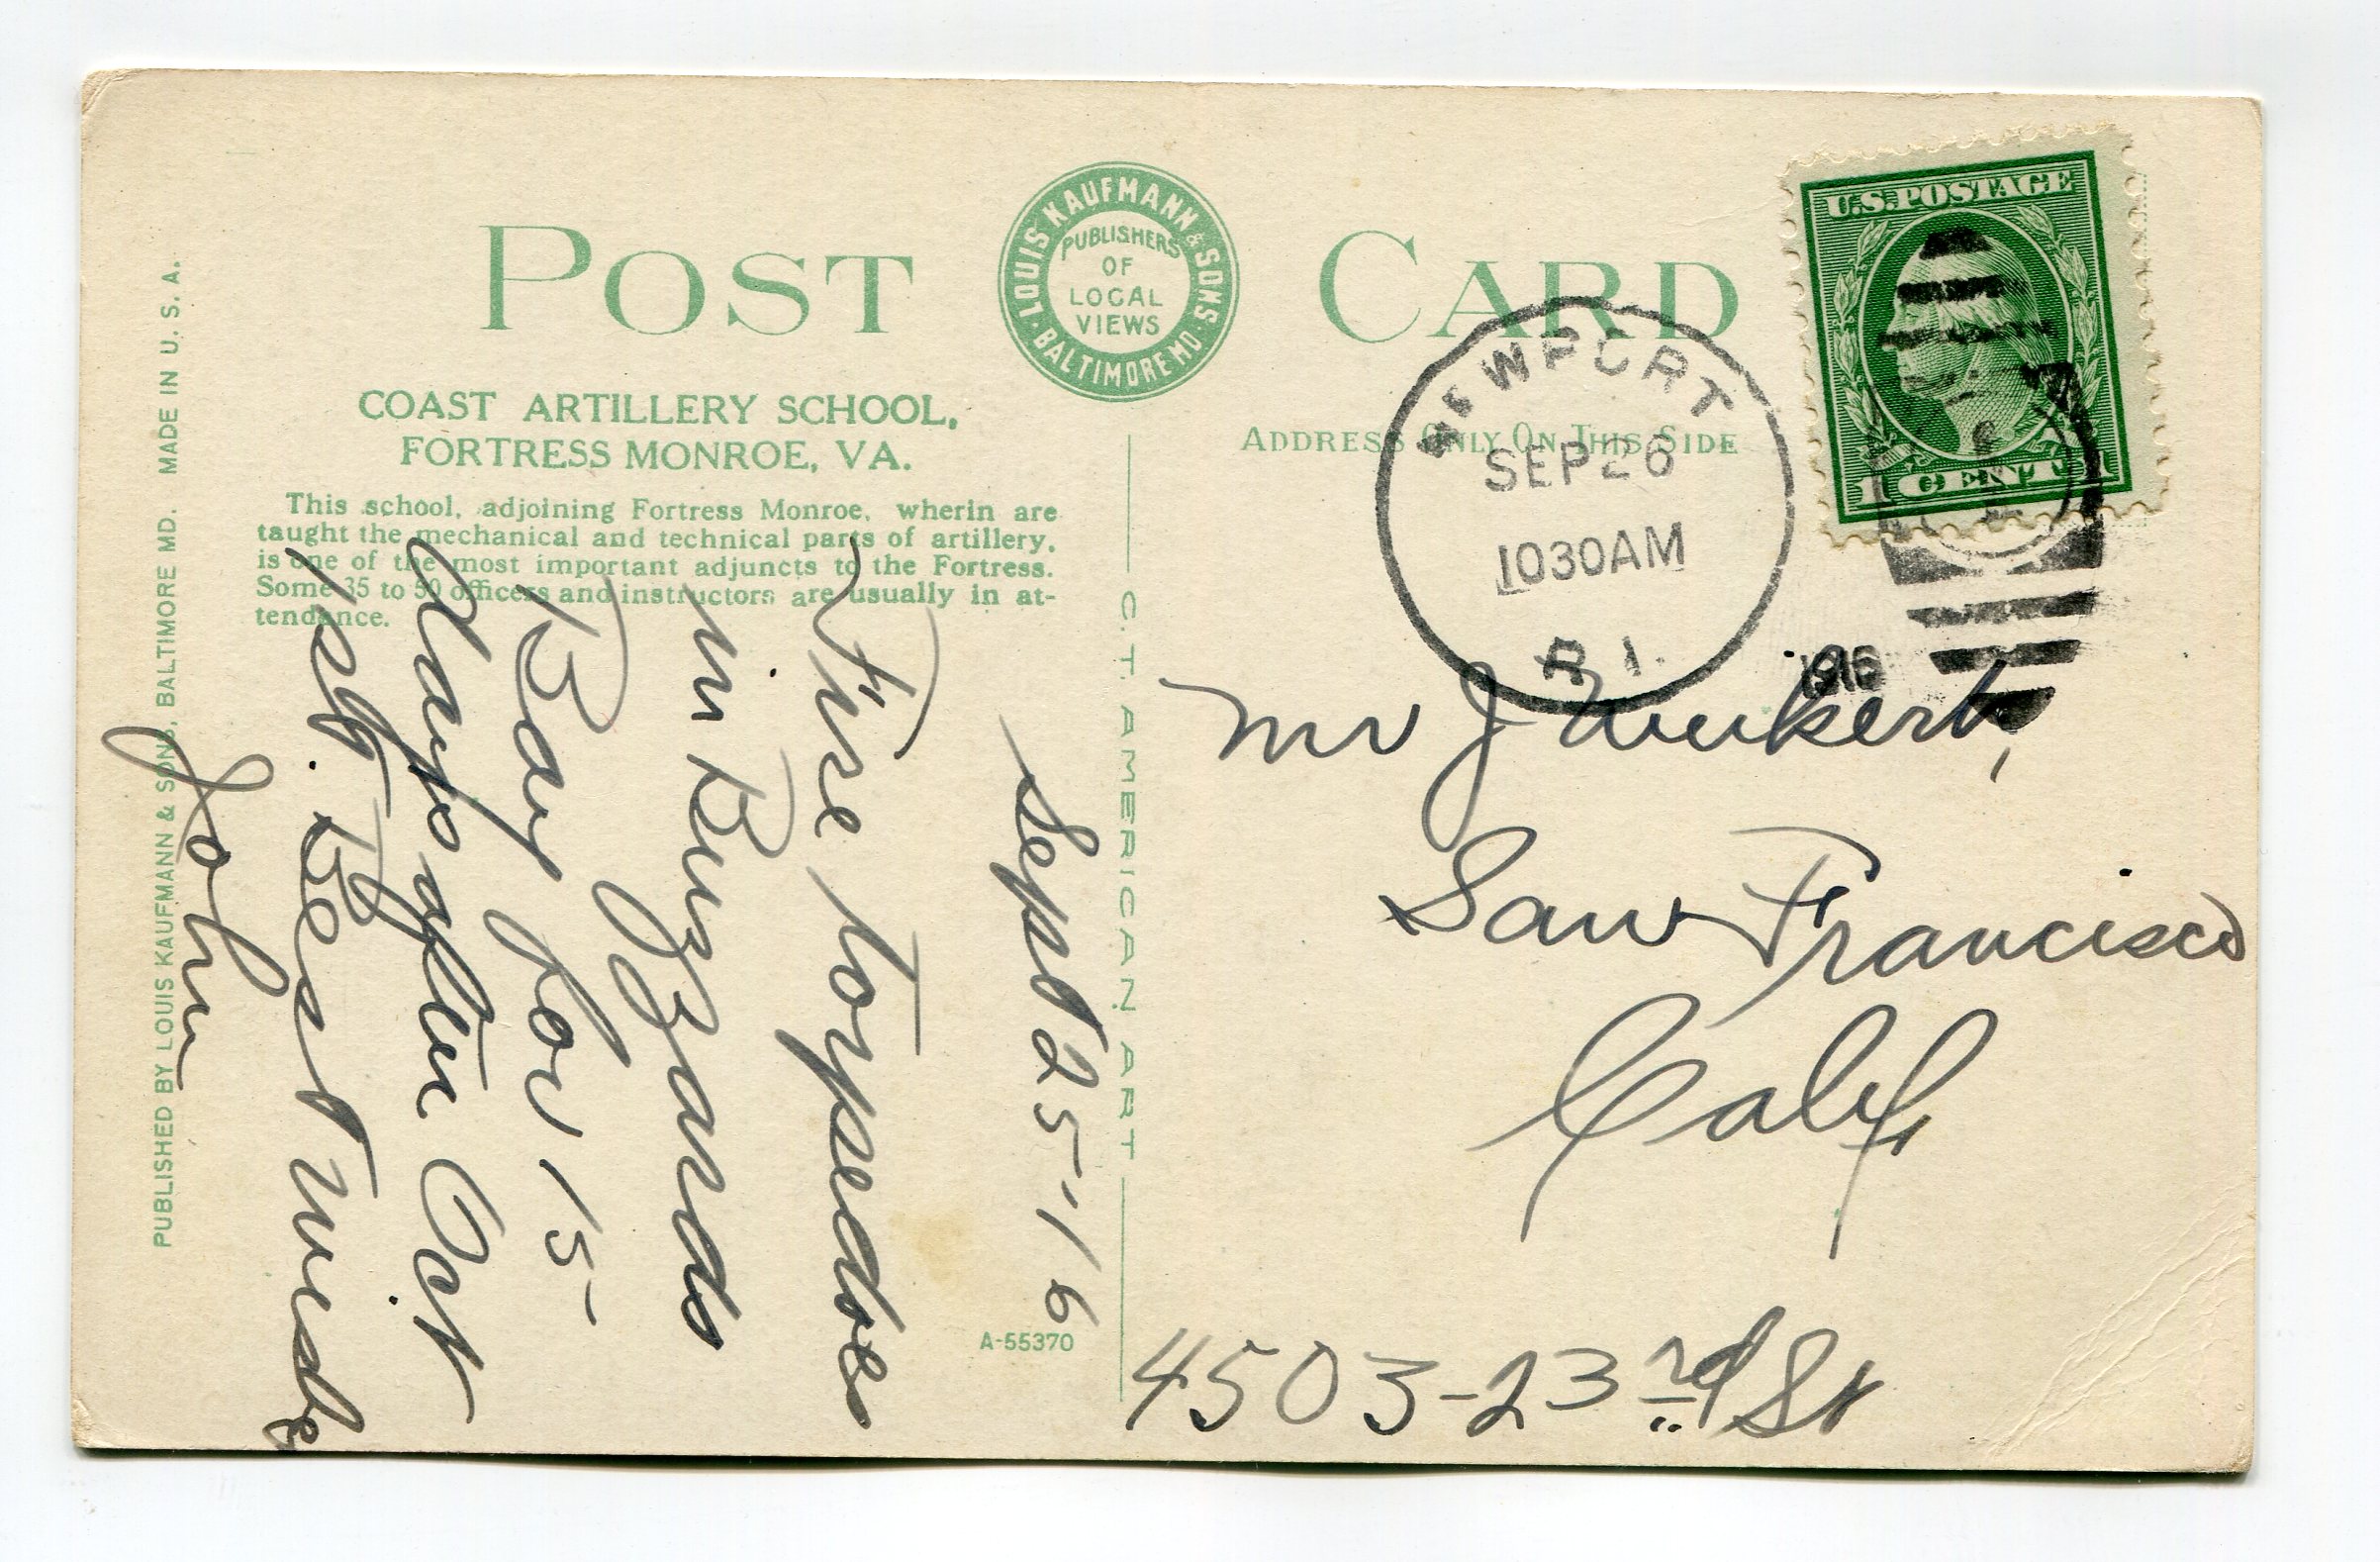 POST CARD
LOUIS KAUFMANN & SONS
BALTIMORE MD.
PUBLISHERS
OF
LOCAL
VIEWS
COAST ARTILLERY SCHOOL,
FORTRESS MONROE, VA.
This school, adjoining Fortress Monroe, wherein are
taught the mechanical and technical parts of artillery,
is one of the most important adjuncts to the Fortress.
Some 35 to 50 officers and instructors are usually in at-
tendance.
PUBLISHED BY LOUIS KAUFMANN & SONS, BALTIMORE MD. MADE IN U. S. A.
Sept 25-16
Fire torpedoes
in Buzzards
Bay for 15-
days after Oct
1st. Best
John
A-55370
C. T. AMERICAN ART
ADDRESS ONLY ON THIS SIDE
U.S. POSTAGE
1 CENT 1
NEWPORT
SEP 26
1030AM
R.I.
1916
Mr J
San Francisco
Calif
4503-23rd St